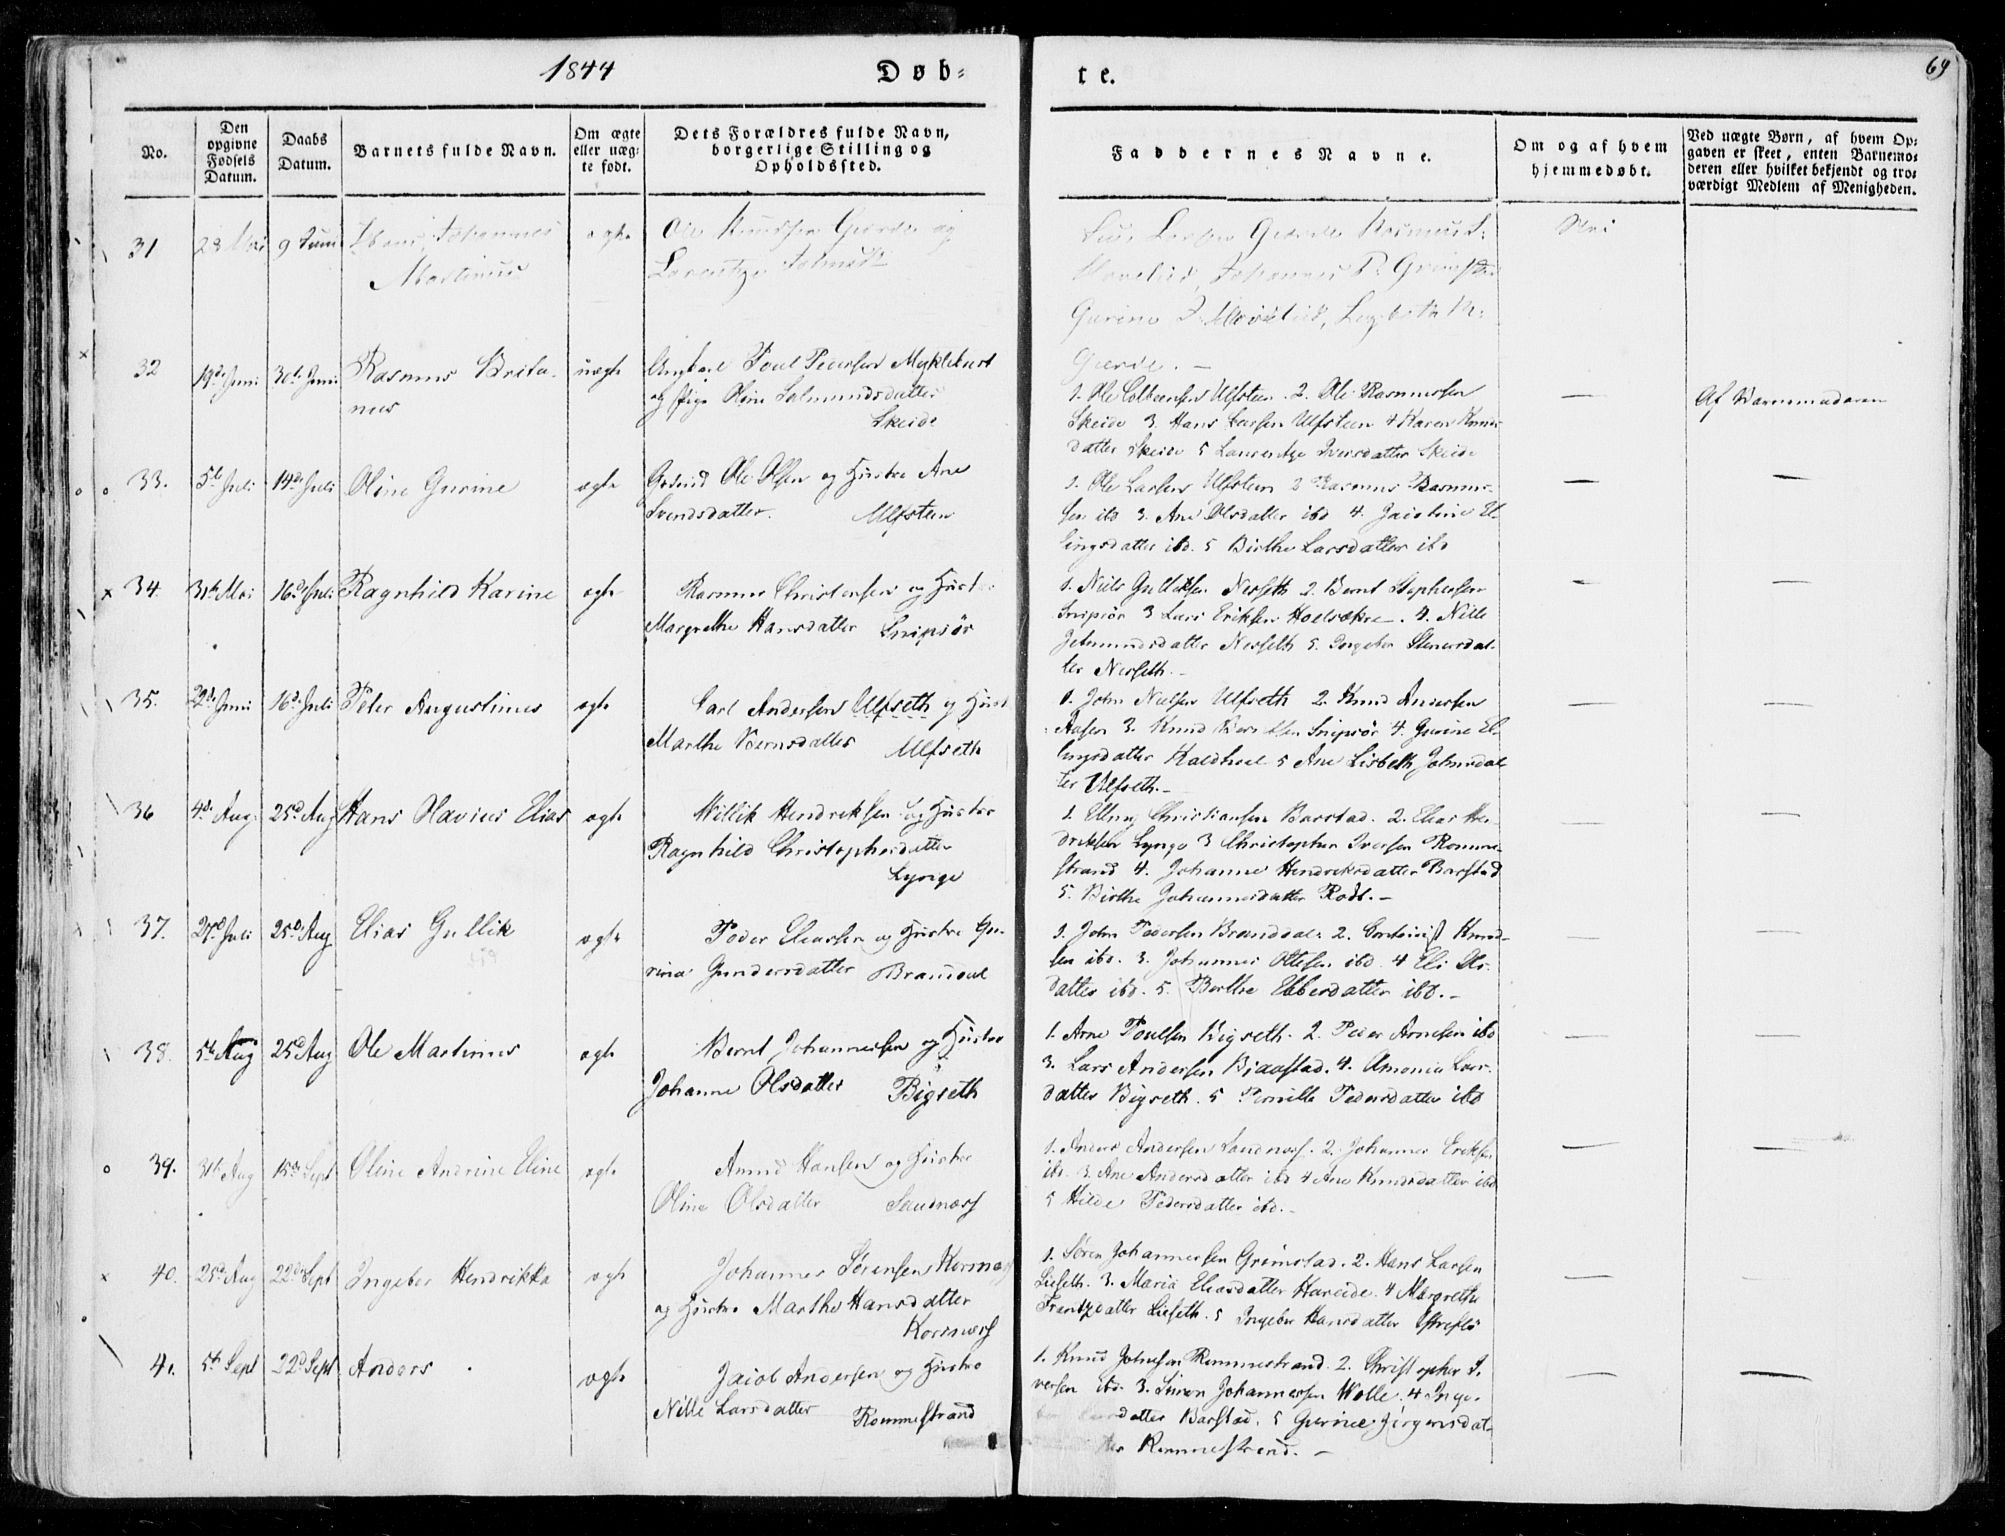 1844
Døb-
te.
69
No.
Den opgivne Fødsels Datum.
Daabs Datum.
Barnets fulde Navn.
Om ægte eller uægte født.
Dets Forældres fulde Navn, borgerlige Stilling og Opholdssted.
Faddernes Navne.
Om og af hvem hjemmedøbt.
Ved uægte Børn, af hvem Opgaven er skeet, enten Barnemoderen eller hvilket bekjendt og troværdigt Medlem af Menigheden.
31 28 Mai 9 Juni Johannes
Martinus
ægte
Ole Knudsen Gjerde og
Larsen Gjerde Rasmus
Johannes P. Grimstad
32 19de Juni 30te Juni Rasmus Brita-
nus
uægte
Ungkarl Poul Pedersen Myklebust
og Pige Oline Salmundsdatter
Skeide
1. Ole Colbeensen Ulfsteen. 2. Ole Rasmussen
Skeide 3. Hans Larsen Ulfsteen 4 Karen Knuds-
datter Skeide 5 Laurentze Iversdatter Skeide
—
Af Barnemoderen
33. 5te Juli 14de Juli Oline Gurine
ægte
Ole Olsen og Hustro Ane
Svendsdatter. Ulfsteen
1. Ole Larsen Ulfsteen 2 Rasmus Rasmus-
sen ibd 3. Ane Olsdatter ibd 4. Jacobine El-
lingsdatter ibd. 5 Birthe Larsdatter ibd
— —
34. 31te Mai 16de Juli Ragnhild Karine
ægte
Rasmus Christensen og Hustro
Margrethe Hansdatter Snipsör
1. Niels Gulliksen Nesseth 2. Bernt Stephensen
Snipsör 3 Lars Eriksen Holsækre. 4. Nille
Jetmundsdatter Nesseth 5. Ingebor Steneersdat-
ter Nesseth.-
— —
35. 22de Juni 16de Juli Peter Augustinus
ægte
Carl Andersen Ulfseth og Hust
Marthe Berntsdatter Ulfseth
1. John Nielsen Ulfseth 2. Knud Andersen
Aasen 3. Knud Snipsör 4. Gurine El-
lingsdatter Kaldhol 5 Ane Lisbeth Johnsdat
ter Ulfseth.-
— —
36 4de Aug. 25de Aug Hans Olavius Elias
ægte
Willik Hendriksen og Hustro
Ragnhild Christophersdatter
Lynge
1. Elling Christiansen Barstad. 2. Elias Hen-
driksen Lynge 3 Christopher Iversen Romme-
strand 4. Johanne Hendriksdatter Barstad
5. Birthe Johannesdatter Rodt.-
— —
37. 27de Juli 25de Aug. Elias Gullik
ægte
Peder Eliassen og Hustro Gu-
rina Gundersdatter Brandal
1. John Pedersen Brandal. 2. Knud-
sen ibd. 3. Johannes Ottesen ibd. 4 Eli Ols-
datter ibd. 5. Berthe Ebbesdatter ibd.-
— —
38. 5te Aug 25de Aug Ole Martinus
ægte
Bernt Johannessen og Hustro
Johanne Olsdatter Bigseth
1. Arne Poulsen Bigseth. 2. Peder Arnesen ibd
3. Lars Andersen Bjaastad. 4. Amonia Lars-
datter Bigseth. 5 Pernille Pedersdatter ibd
— —
39. 31te Aug 15de Sept Oline Andrine Eline
ægte
Amund Hansen og Hustro
Oline Olsdatter Sandnæss
1. Anders Andersen Sandnæss. 2. Johannes Eriksen
ibd. 3. Ane Andersdatter ibd 4 Ane Knudsdatter ibd
5 Hilde Pedersdatter ibd.-
— —
40. 25de Aug 22de Sept Ingebor Hendrikka
ægte
Johannes Sørensen Kornæss
og Hustro Marthe Hansdatter
Kornæss
1. Sören Johannessen Grimstad. 2. Hans Larsen
Lieseth. 3. Maria Eliasdatter Hareide. 4 Margrethe
Frantzdatter Lieseth. 5 Ingebor Hansdatter
—
41. 5te Sept 22de Sept Anders
ægte
Jacob Andersen og Hustro
Nille Larsdatter Rommestrand
1. Knud Johnsen Rommestrand. 2. Christopher I-
versen ibd. 3. Simon Johannessen Wolle. 4 Inge-
datter Barstad. 5 Gurine Jörgensdat-
ter Rommestrand.-
— —